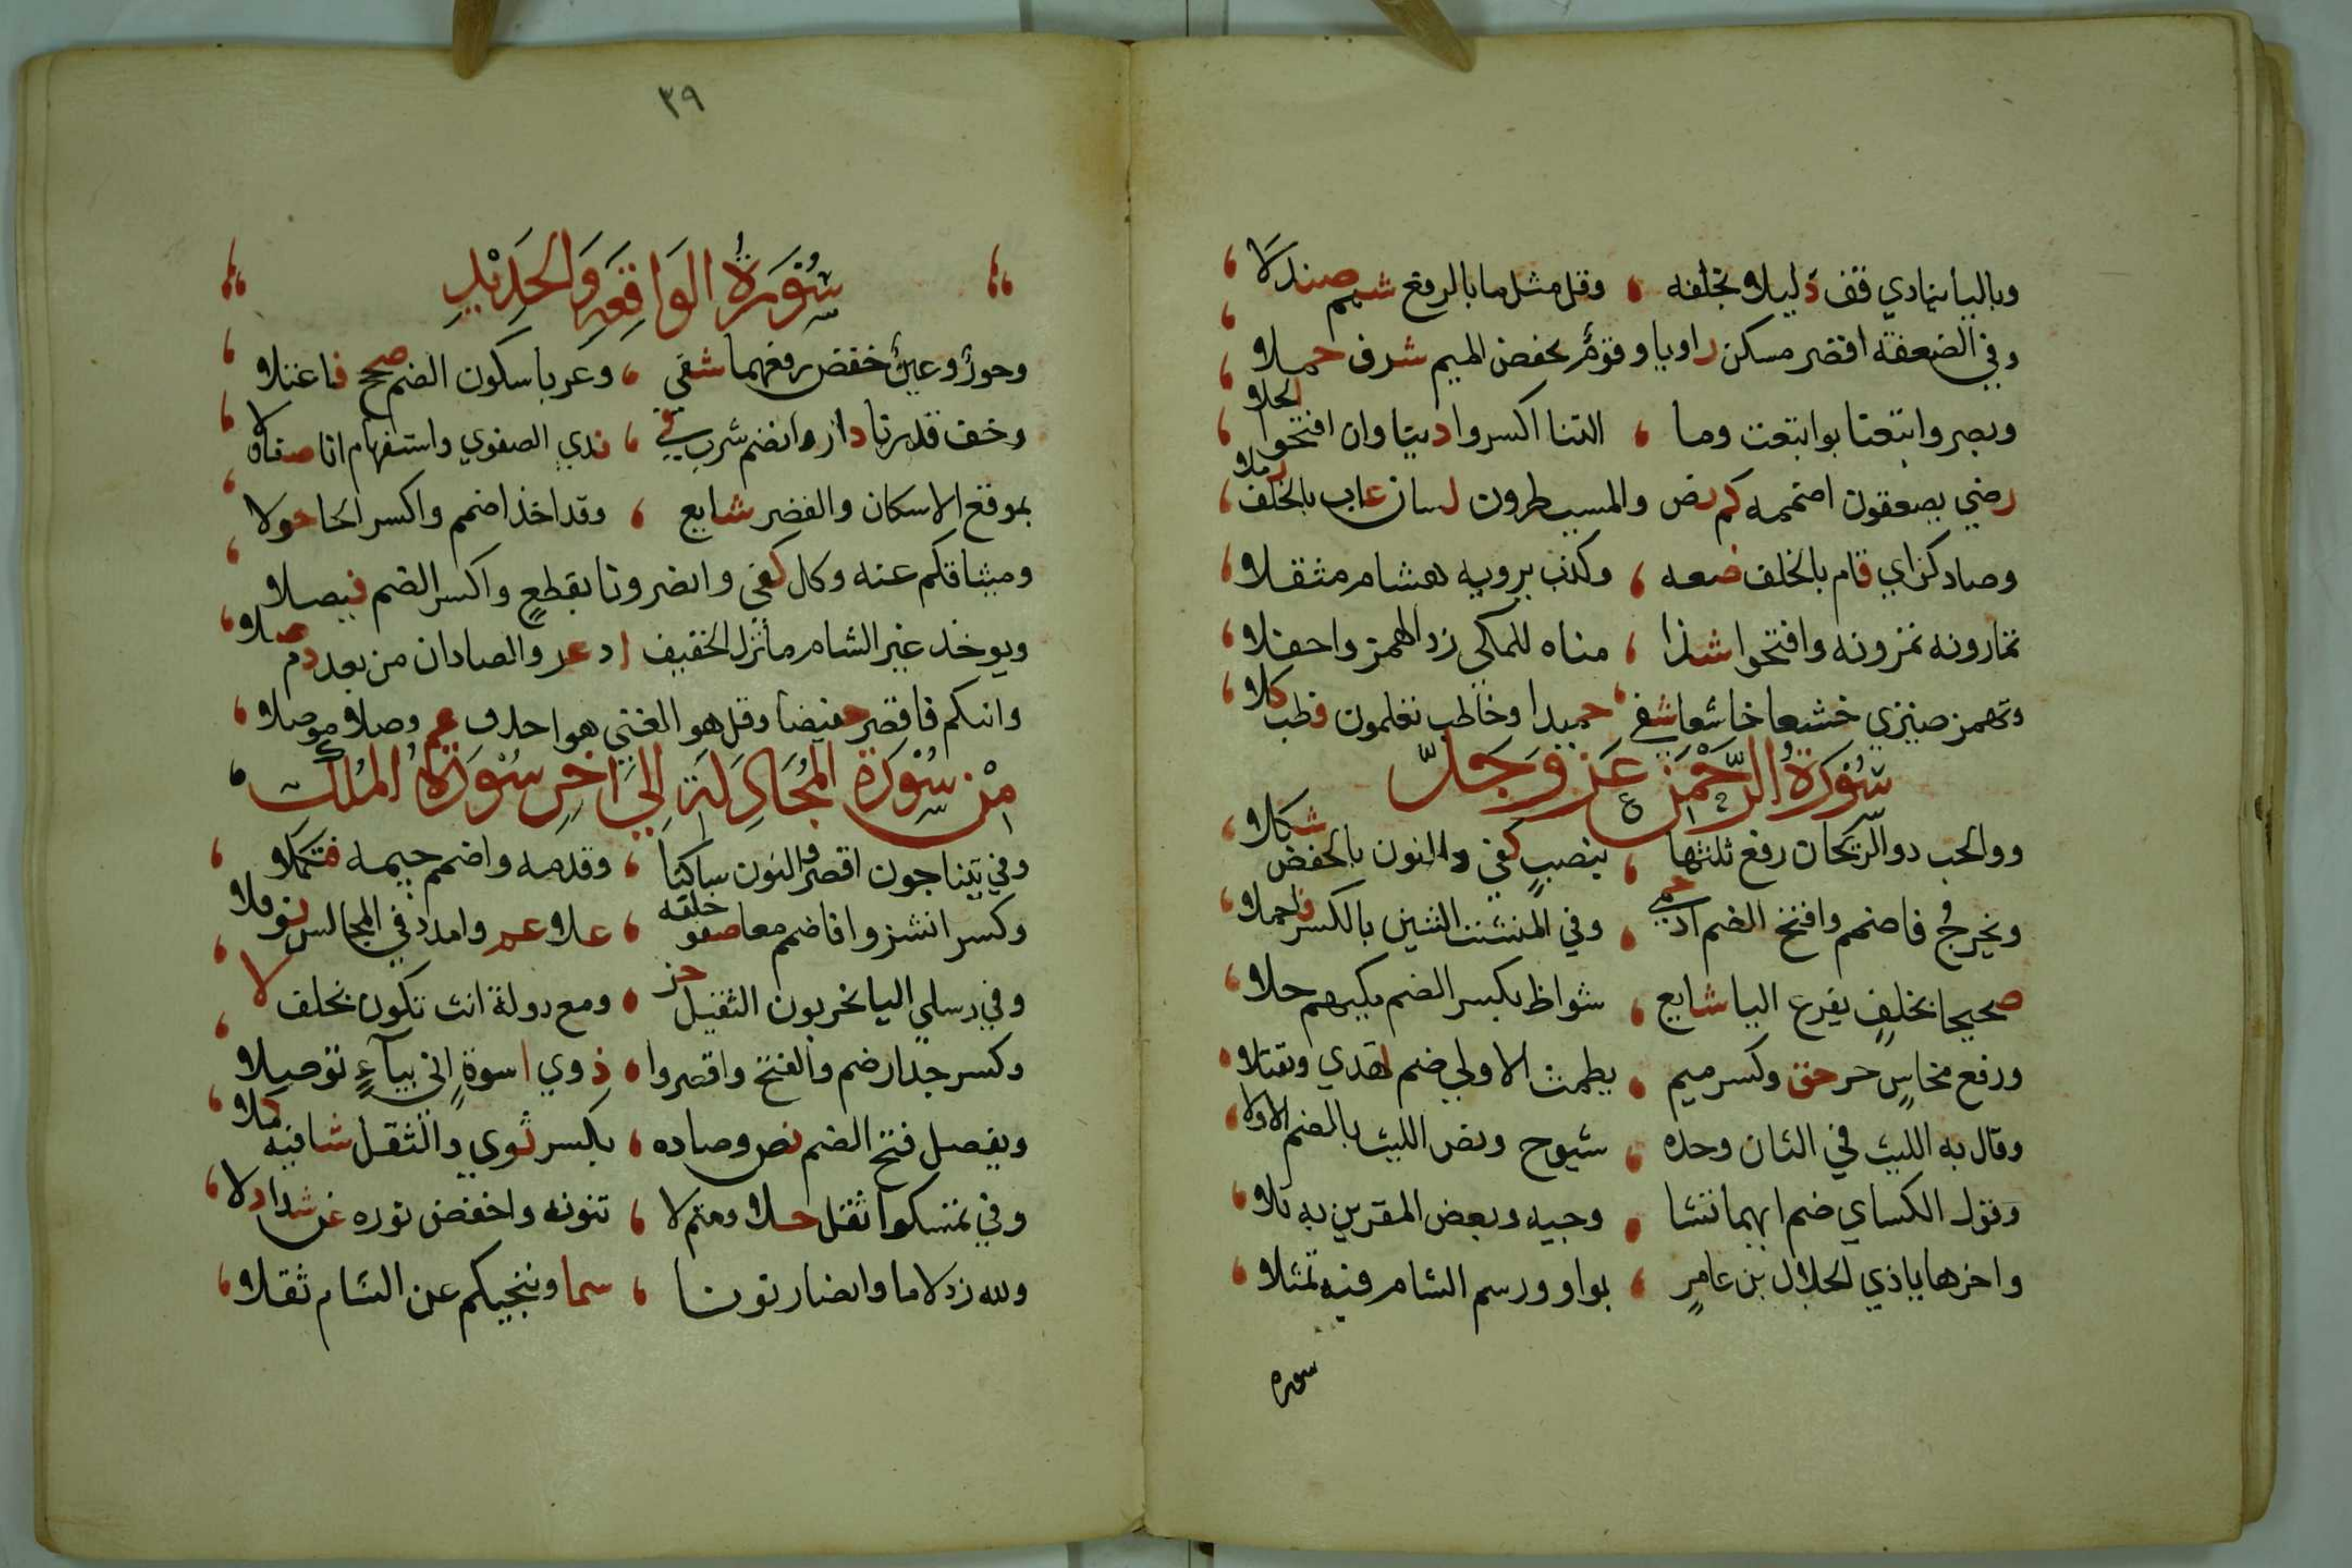 وباليا ينادي قف دليلا بخلفه ، وقل مثل ما بالرفع شمم صندلا
وفي الصعقة اقصر مسكن راويا وقومَ بخفض الميم شرف حملا
وبصر واتبعنا بواتبعت وما ، التنا اكسروا دينا وان افتحوا الجلا
رضي يصعقون اضممه كم نص والمسيطرون لسان عاب بالخلف زملا
وصاد كزاي قام بالخلف ضعه ، وكذب يرويه هشام مثقلا
تمارونه تمرونه وافتحوا شذا ، مناه للمكي زد الهمز واحفلا
وتهمز ضيزي خشعا خاشعا شفي ، حميدا وخاطب تعلمون فطب كلا
سُورَةُ الرَّحْمٰن عَزَ وَجَلّ
ووالحب ذو الريحان رفع ثلثها ، بنصبٍ كفي والنون بالخفض شكلا
ويخرجُ فاضمم وافتح الضم اذ حمي ، وفي المنشئت الشين بالكسر فاحملا
صحيحا بخلفٍ يفرع اليا شايع ، شواظ بكسر الضم مكيهم جلا
ورفع نحاسٍ جر حق وكسر ميم ، يطمث الاولي ضم تهدي وتقبلا
وقال به الليث في الثان وحده ، شيوح ونص الليث بالضم الاولا
وقول الكساي ضم ايهما تشا ، وجيه وبعض المقرين به تلا
واخرها يا ذي الجلال بن عامرٍ ، بواو ورسم الشام فيه تمثلا
سوره
٣٩
سُورَةُ الوَاقِعَةِ وَالحَدِيْدِ
وحورٌ وعينٌ خفض رفعهما شفي ، وعربا سكون الضم صحح فاعتلا
وخف قدرنا دار وانضم شرب في ، ندي الصفوي واستفهام انا صفا ولا
بموقع الاسكان والقصر شايع ، وقد اخذ اضمم واكسر الخا حولا
وميثاقكم عنه وكل كفي وانضرونا بقطعٍ واكسر الضم فيصلا
ويوخذ غير الشام ما نزل الخفيف اذ عز والصادان من بعد دم صلا
واتيكم فاقصر حفيضا وقل هو الغني هو احذف عم وصلا موصلا
مِنْ سُوْرَةِ المُجَادِلَةِ إِلَي اَخِرِ سُوْرَةِ المُلْكِ
وفي يتناجون اقصر والنون ساكنا ، وقدمه واضمم جيمه فتكملا
وكسر انشزوا فاضمم معا صفو خلفه ، علا عم وامدد في المجالس نوفلا
وفي رسلي اليا يخربون الثقيل حز ، ومع دولة انث تكون بخلف لا
وكسر جدار ضم والفتح واقصروا ، ذوي اسوةٍ اني بيآءٍ توصلا
ويفصل فتح الضم نص وصاده ، بكسر ثوي والثقل شافيه كملا
وفي تمسكوا ثقل حلا ومتم لا ، تنونه واخفض نوره عن شذا دلا
ولله زد لاما وانصار نونا ، سما وننجيكم عن الشام ثقلا